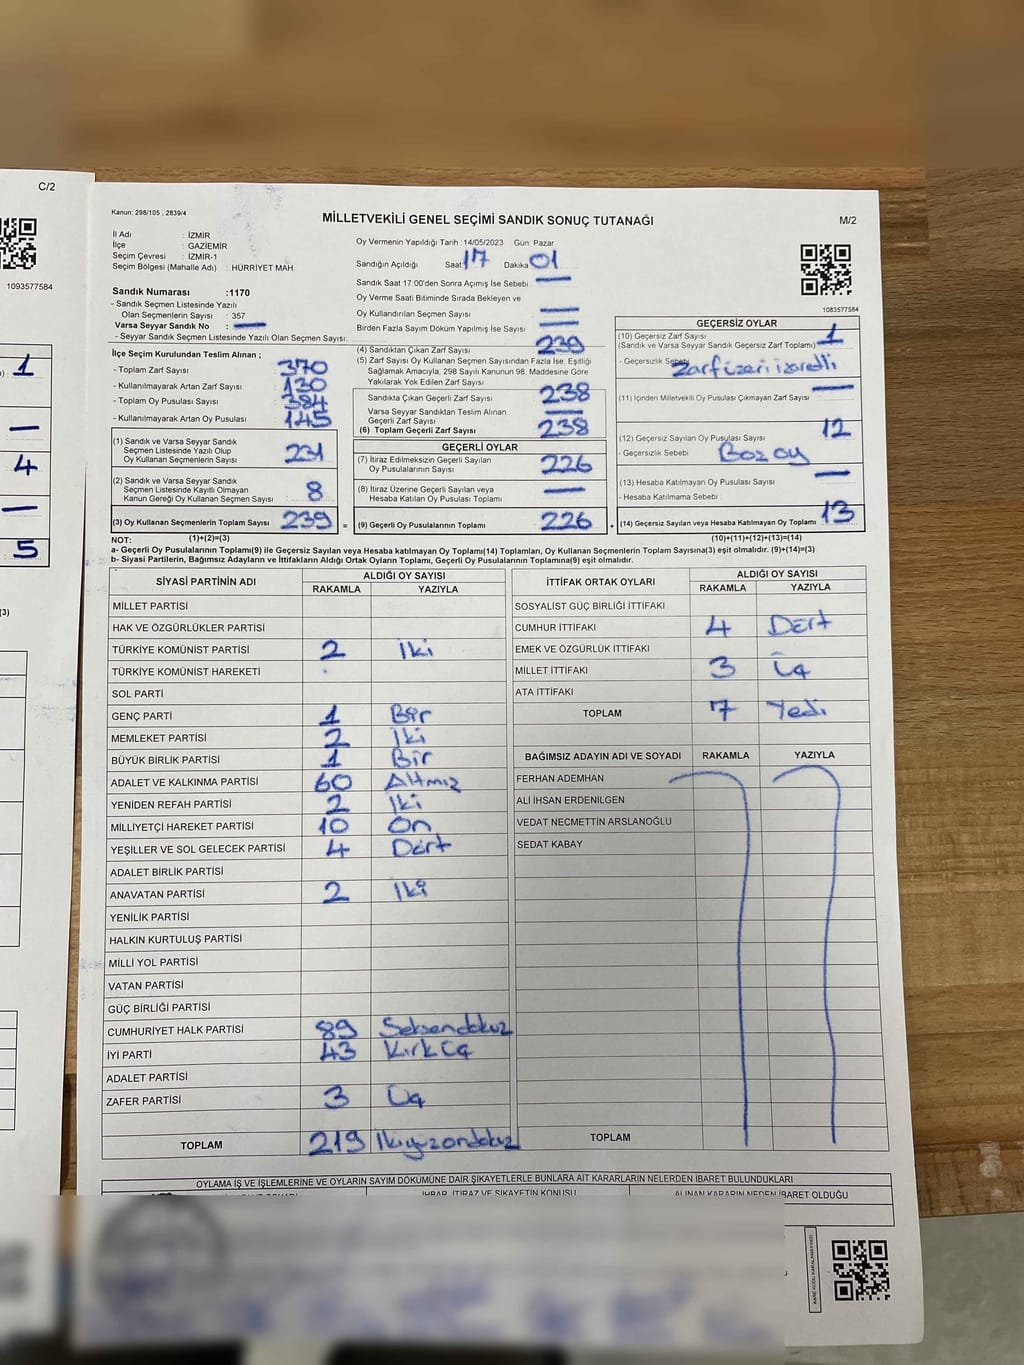 C/2
1093577584
1
4
5
Kanun: 298/105 , 2839/4
MİLLETVEKİLİ GENEL SEÇİMİ SANDIK SONUÇ TUTANAĞI
M/2
İl Adı : İZMİR
İlçe : GAZİEMİR
Seçim Çevresi : İZMİR-1
Seçim Bölgesi (Mahalle Adı) : HÜRRİYET MAH
Oy Vermenin Yapıldığı Tarih : 14/05/2023 Gün: Pazar
Sandığın Açıldığı Saat 17 Dakika 01
Sandık Saat 17:00'den Sonra Açımış İse Sebebi —
Oy Verme Saati Bitiminde Sırada Bekleyen ve
Oy Kullandırılan Seçmen Sayısı —
Birden Fazla Sayım Döküm Yapılmış İse Sayısı —
1083577584
Sandık Numarası :1170
- Sandık Seçmen Listesinde Yazılı
Olan Seçmenlerin Sayısı : 357
Varsa Seyyar Sandık No : —
- Seyyar Sandık Seçmen Listesinde Yazılı Olan Seçmen Sayısı :
İlçe Seçim Kurulundan Teslim Alınan ;
- Toplam Zarf Sayısı 370
- Kullanılmayarak Artan Zarf Sayısı 130
- Toplam Oy Pusulası Sayısı 384
- Kullanılmayarak Artan Oy Pusulası 145
(1) Sandık ve Varsa Seyyar Sandık
Seçmen Listesinde Yazılı Olup
Oy Kullanan Seçmenlerin Sayısı 231
(2) Sandık ve Varsa Seyyar Sandık
Seçmen Listesinde Kayıtlı Olmayan
Kanun Gereği Oy Kullanan Seçmen Sayısı 8
(3) Oy Kullanan Seçmenlerin Toplam Sayısı 239 =
(4) Sandıktan Çıkan Zarf Sayısı 239
(5) Zarf Sayısı Oy Kullanan Seçmen Sayısından Fazla İse, Eşitliği
Sağlamak Amacıyla, 298 Sayılı Kanunun 98. Maddesine Göre
Yakılarak Yok Edilen Zarf Sayısı
Sandıkta Çıkan Geçerli Zarf Sayısı 238
Varsa Seyyar Sandıktan Teslim Alınan
Geçerli Zarf Sayısı —
(6) Toplam Geçerli Zarf Sayısı 238
GEÇERLİ OYLAR
(7) İtiraz Edilmeksizin Geçerli Sayılan
Oy Pusulalarının Sayısı 226
(8) İtiraz Üzerine Geçerli Sayılan veya
Hesaba Katılan Oy Pusulası Toplamı —
(9) Geçerli Oy Pusulalarının Toplamı 226 +
GEÇERSİZ OYLAR
(10) Geçersiz Zarf Sayısı
(Sandık ve Varsa Seyyar Sandık Geçersiz Zarf Toplamı) 1
- Geçersizlik Sebebi Zarf üzeri işaretli
(11) İçinden Milletvekili Oy Pusulası Çıkmayan Zarf Sayısı —
(12) Geçersiz Sayılan Oy Pusulası Sayısı 12
- Geçersizlik Sebebi Boz oy
(13) Hesaba Katılmayan Oy Pusulası Sayısı —
- Hesaba Katılmama Sebebi :
(14) Geçersiz Sayılan veya Hesaba Katılmayan Oy Toplamı 13
NOT: (1)+(2)=(3) (10)+(11)+(12)+(13)=(14)
a- Geçerli Oy Pusulalarının Toplamı(9) ile Geçersiz Sayılan veya Hesaba katılmayan Oy Toplamı(14) Toplamları, Oy Kullanan Seçmenlerin Toplam Sayısına(3) eşit olmalıdır. (9)+(14)=(3)
b- Siyasi Partilerin, Bağımsız Adayların ve İttifakların Aldığı Ortak Oyların Toplamı, Geçerli Oy Pusulalarının Toplamına(9) eşit olmalıdır.
SİYASİ PARTİNİN ADI ALDIĞI OY SAYISI
RAKAMLA YAZIYLA
MİLLET PARTİSİ
HAK VE ÖZGÜRLÜKLER PARTİSİ
TÜRKİYE KOMÜNİST PARTİSİ 2 iki
TÜRKİYE KOMÜNİST HAREKETİ
SOL PARTİ
GENÇ PARTİ 1 Bir
MEMLEKET PARTİSİ 2 iki
BÜYÜK BİRLİK PARTİSİ 1 Bir
ADALET VE KALKINMA PARTİSİ 60 Altmış
YENİDEN REFAH PARTİSİ 2 iki
MİLLİYETÇİ HAREKET PARTİSİ 10 On
YEŞİLLER VE SOL GELECEK PARTİSİ 4 Dört
ADALET BİRLİK PARTİSİ
ANAVATAN PARTİSİ 2 iki
YENİLİK PARTİSİ
HALKIN KURTULUŞ PARTİSİ
MİLLİ YOL PARTİSİ
VATAN PARTİSİ
GÜÇ BİRLİĞİ PARTİSİ
CUMHURİYET HALK PARTİSİ 89 Seksendokuz
İYİ PARTİ 43 Kırk üç
ADALET PARTİSİ
ZAFER PARTİSİ 3 Üç
TOPLAM 219 ikiyüzondokuz
İTTİFAK ORTAK OYLARI ALDIĞI OY SAYISI
RAKAMLA YAZIYLA
SOSYALİST GÜÇ BİRLİĞİ İTTİFAKI
CUMHUR İTTİFAKI 4 Dört
EMEK VE ÖZGÜRLÜK İTTİFAKI
MİLLET İTTİFAKI 3 Üç
ATA İTTİFAKI
TOPLAM 7 Yedi
BAĞIMSIZ ADAYIN ADI VE SOYADI RAKAMLA YAZIYLA
FERHAN ADEMHAN
ALİ İHSAN ERDENİLGEN
VEDAT NECMETTİN ARSLANOĞLU
SEDAT KABAY
TOPLAM
OYLAMA İŞ VE İŞLEMLERİNE VE OYLARIN SAYIM DÖKÜMÜNE DAİR ŞİKAYETLERLE BUNLARA AİT KARARLARIN NELERDEN İBARET BULUNDUKLARI
İHBAR, İTİRAZ VE ŞİKAYETİN KONUSU
ALINAN KARARIN NEDEN İBARET OLDUĞU